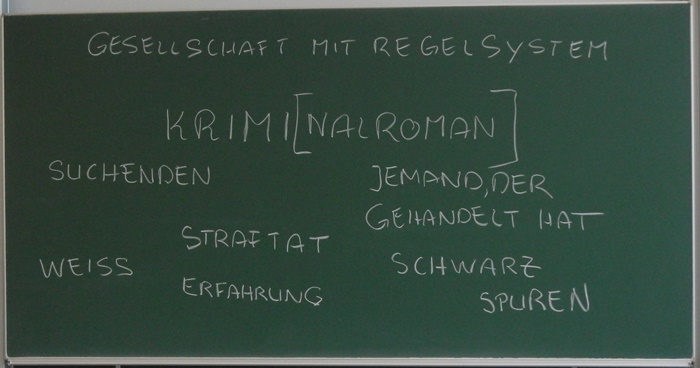 GESELLSCHAFT MIT REGELSYSTEM
KRIMI[NALROMAN]
SUCHENDEN
JEMAND, DER
GEHANDELT HAT
STRAFTAT
WEISS
SCHWARZ
ERFAHRUNG
SPUREN